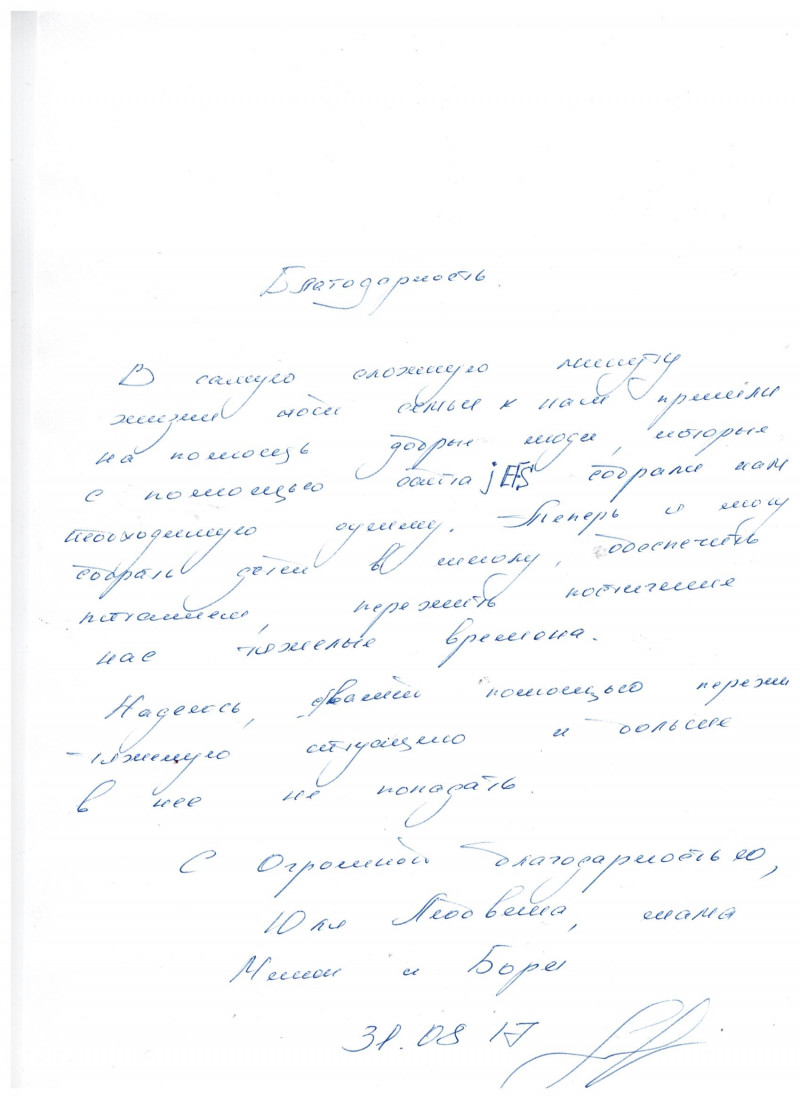 Благодарность.
В самую сложную минуту
жизни моей семьи к нам пришли
на помощь добрые люди, которые
с помощью сайта jEFS собрали нам
необходимую сумму. Теперь я могу
собрать детей в школу, обеспечить
питанием, пережить постигшие
нас тяжелые времена.
Надеюсь, с вашей помощью пережи
тяжелую ситуацию и больше
в нее не попадать.
С Огромной благодарностью,
Юля, мама
и Бори
31.08 17